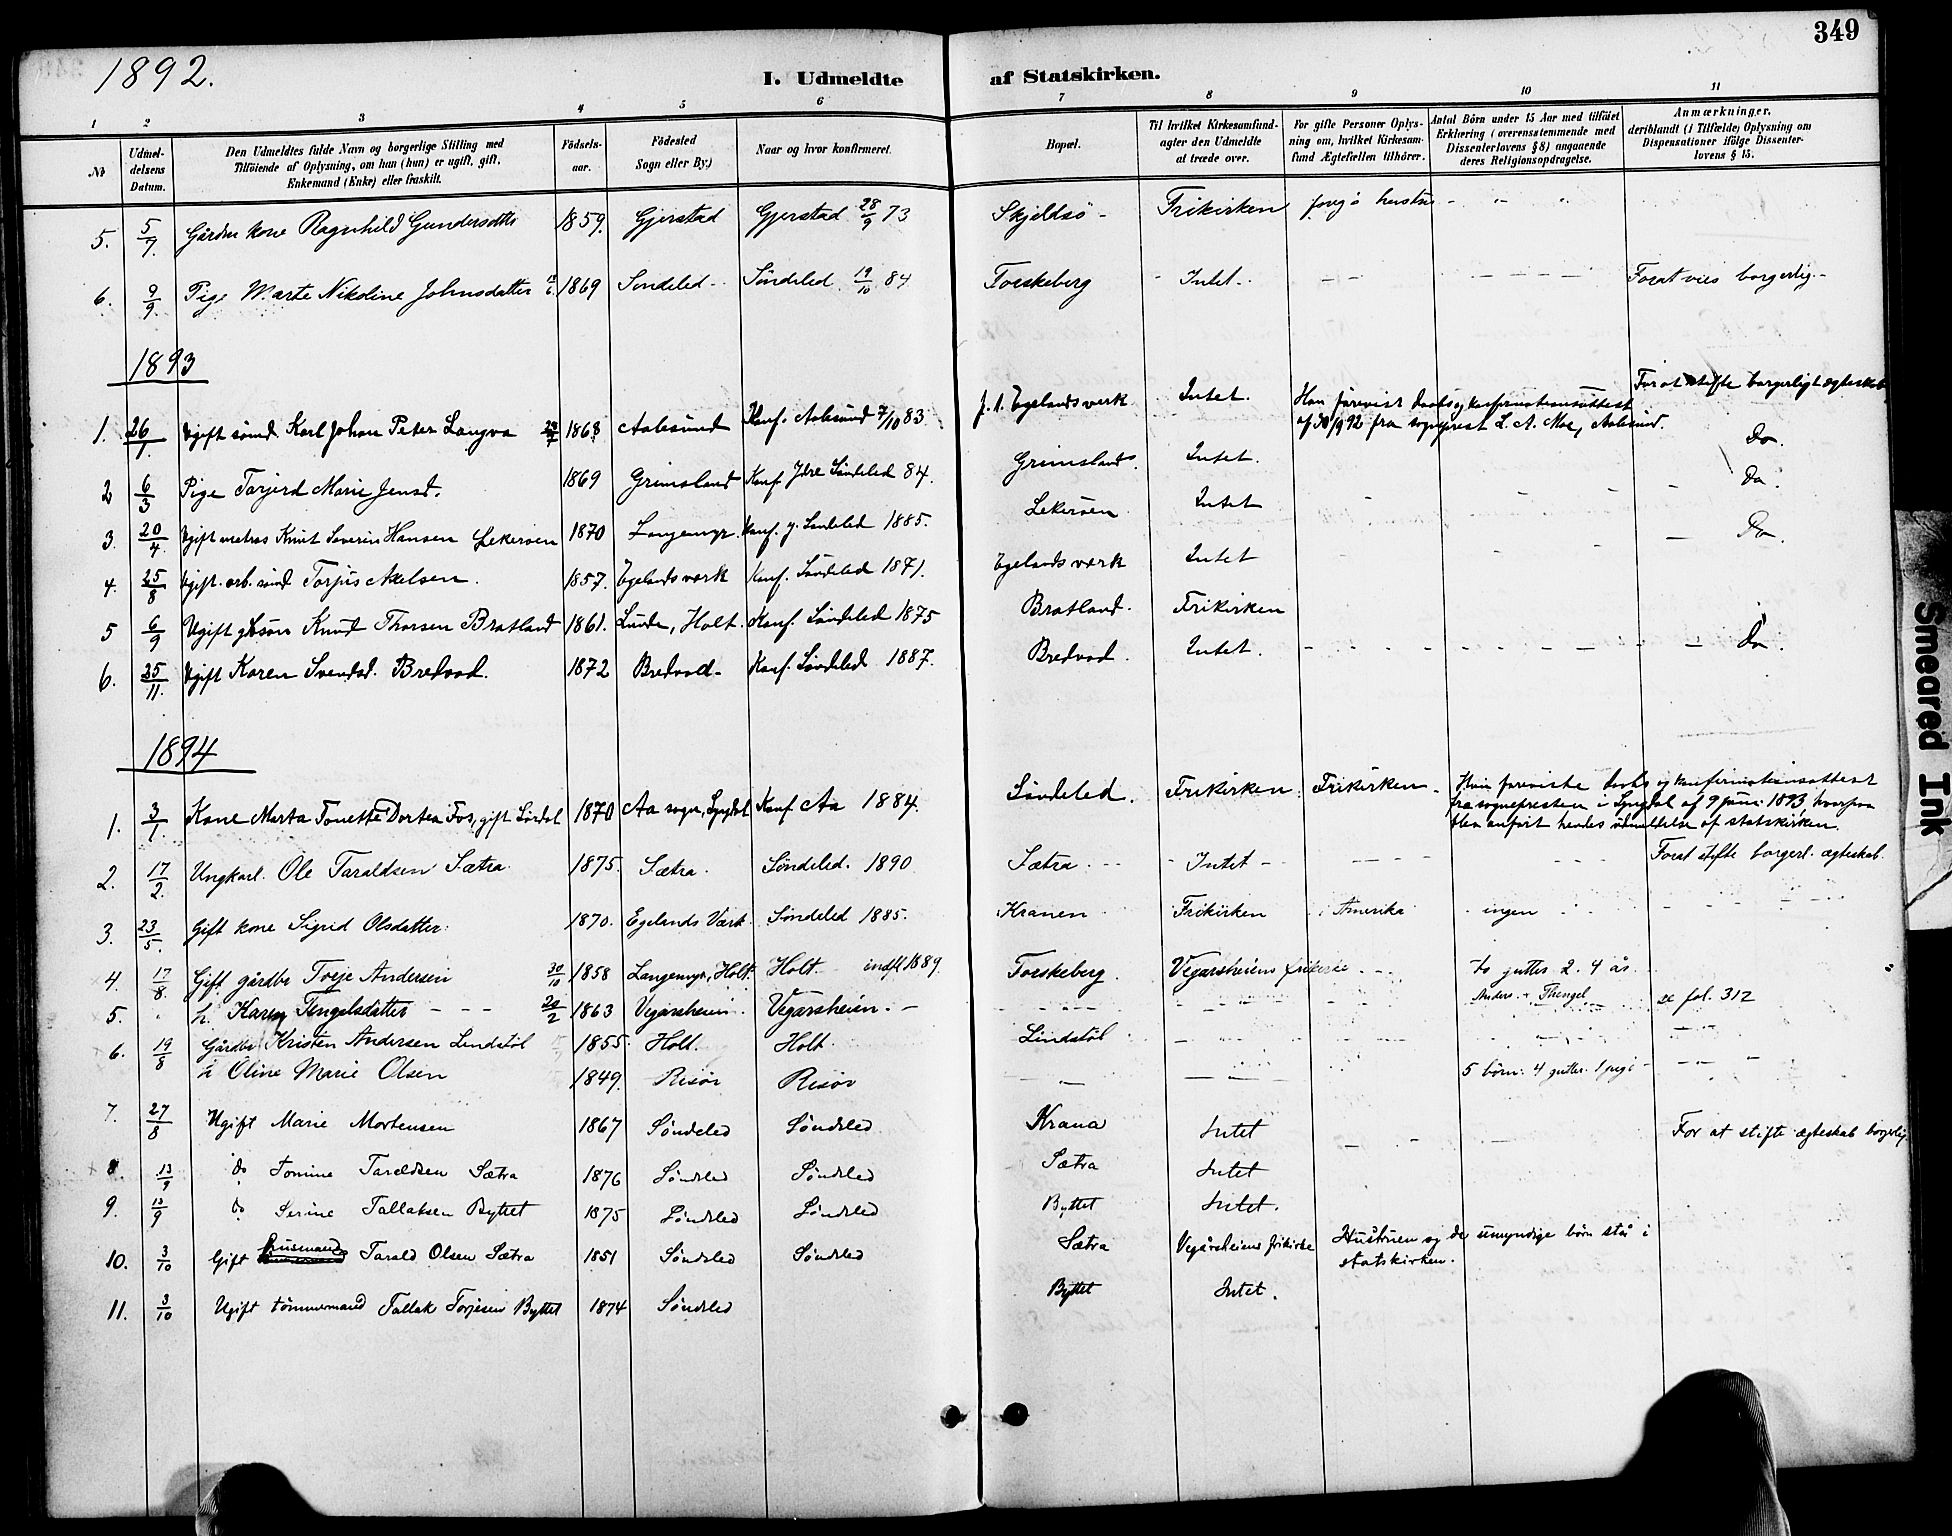 349
1892.
I. Udmeldte af Statskirken.
1 2 3 4 5 6 7 8 9 10 11
№
Udmel-
delsens
Datum.
Den Udmeldtes fulde Navn og borgerlige Stilling med
Tilföiende af Oplysning, om han (hun) er ugift, gift,
Enkemand (Enke) eller fraskilt.
Födsels-
aar.
Födested
Sogn eller By.)
Naar og hvor konfirmeret.
Bopæl.
Til hvilket Kirkesamfund-
agter den Udmeldte
at træde over.
For gifte Personer Oplys-
ning om, hvilket Kirkesam-
fund Ægtefællen tilhörer.
Antal Börn under 15 Aar med tilföiet
Erklæring i overensstemmende med
Dissenterlovens § 8) angaaende
deres Religionsopdragelse.
Anmærkninger,
deriblandt (i Tilfælde) Oplysning om
Dispensationer ifölge Dissenter-
lovens § 15.
5. 5/9. Gårdm kone Ragnhild Gundersdtr 1859. Gjerstad Gjerstad 28/9 73 Skjeldsö - Frikirken
6. 9/9. Pige Marte Nikoline Johnsdatter 1869 Söndeled - Söndeled 19/10 84 Torskeberg - Intet - Forat vies borgerlig -
1893
1. 26/1 Ugift sömd. Karl Johan Peter Langva 1868 Aalesund Konf. Aalesund 7/10 83. p. t. Egelandsverk Intet. Han forevist daabs og konfirmationsattest For at stifte borgerligt ægteskab
fra sogneprest L. A. Moe, Aalesund.
2 6/3 Pige Torjerd Marie Jensd. 1869 Grimsland Konf. Söndeled 84. Grimsland. Intet. Do.
3. 20/4 Ugift matros Knut Severin Hansen Lekeröen 1870 Langemyr. Konf. Söndeled 1885. Lekeröen Intet Do.
4. 25/8 Ugift. arb. sömd Torjus Axelsen. 1857. Egelandsverk Konf. Söndeled 1871. Egelandsverk Intet Do.
5 6/9 Ugift gbsön Knud Thorsen Bratland 1861. Lunde, Holt. Konf. Söndeled 1875 Bratland. Frikirken
6. 25/11. Ugift Karen Svendsd. Bredvad. 1872 Bredvad - Konf. Söndeled 1887. Bredvad. Intet. Do.
1894
1. 3/1. Kone Marta Tonette Dortea Fos, gift 1870 Aa sogn, Lyngdal Konf Aa 1884. Söndeled. Frikirken. Frikirken. Hun foreviste daabs og konfirmationsattest
fra sognepresten i Lyngdal af 9 juni 1893, hvorpaa
blev anfört hendes udmeldelse af statskirken.
2. 17/2. Ungkarl. Ole Taraldsen Sætra 1875. Sætra. Söndeled. 1890 Sætra. - Intet - Forat stifte borgerl. ægteskab.
3. 23/5. Gift kone Sigrid Olsdatter. 1870. Egelands Værk. Söndeled 1885. Kranen Frikirken i Amerika ingen
4. 17/8. Gift gårdbr Torje Andersen 30/10 1858 Langemyr, Holt. Holt. indfl 1889. Torskeberg. Vegarsheiens frikirke to gutter 2. 4 år.
5. h. Karen Tengelsdatter 20/2 1863 Vegarsheien. Vegarsheien. - Anders. Thengel se fol. 312
6. 19/8 Gårdbr Kristen Andersen Lindstöl 1855. Holt. Holt. Lindstöl
h Oline Marie Olsen 1849. Risör Risör 5 börn: 4 gutter. 1 pige -
7. 27/8 Ugift Marie Mortensen 1867 Söndeled Söndeled Krana Intet For at stifte ægteskab borgerlig.
8 13/9 do Tomine Taraldsen Sætra 1876 Söndeled Söndeled Sætra Intet
9. 13/9 do Serine Tallaksen Byttet 1875 Söndeled Söndeled Byttet Intet.
10. 3/10 Gift husmand Tarald Olsen Sætra 1851 Söndeled Söndeled Sætra Vegårsheiens frikirke Hustruen og de umyndige börn stå i
statskirken.
11. 3/10 Ugift tömmermand Tallak Torjesen Byttet 1874 Söndeled Byttet Intet.
Smeared Ink